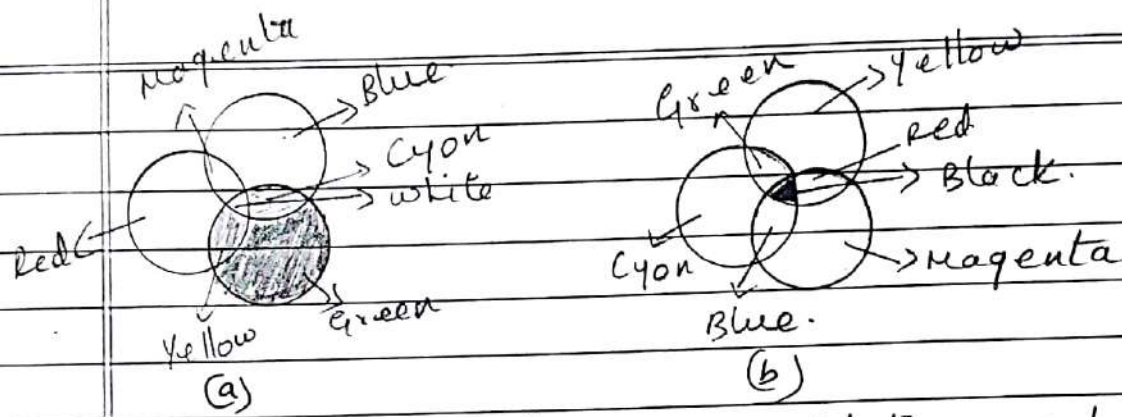 Magenta
Blue
Cyon
white
Red
Yellow
Green
(a)
Green
Yellow
Red
Black.
Cyon
Magenta
Blue.
(b)